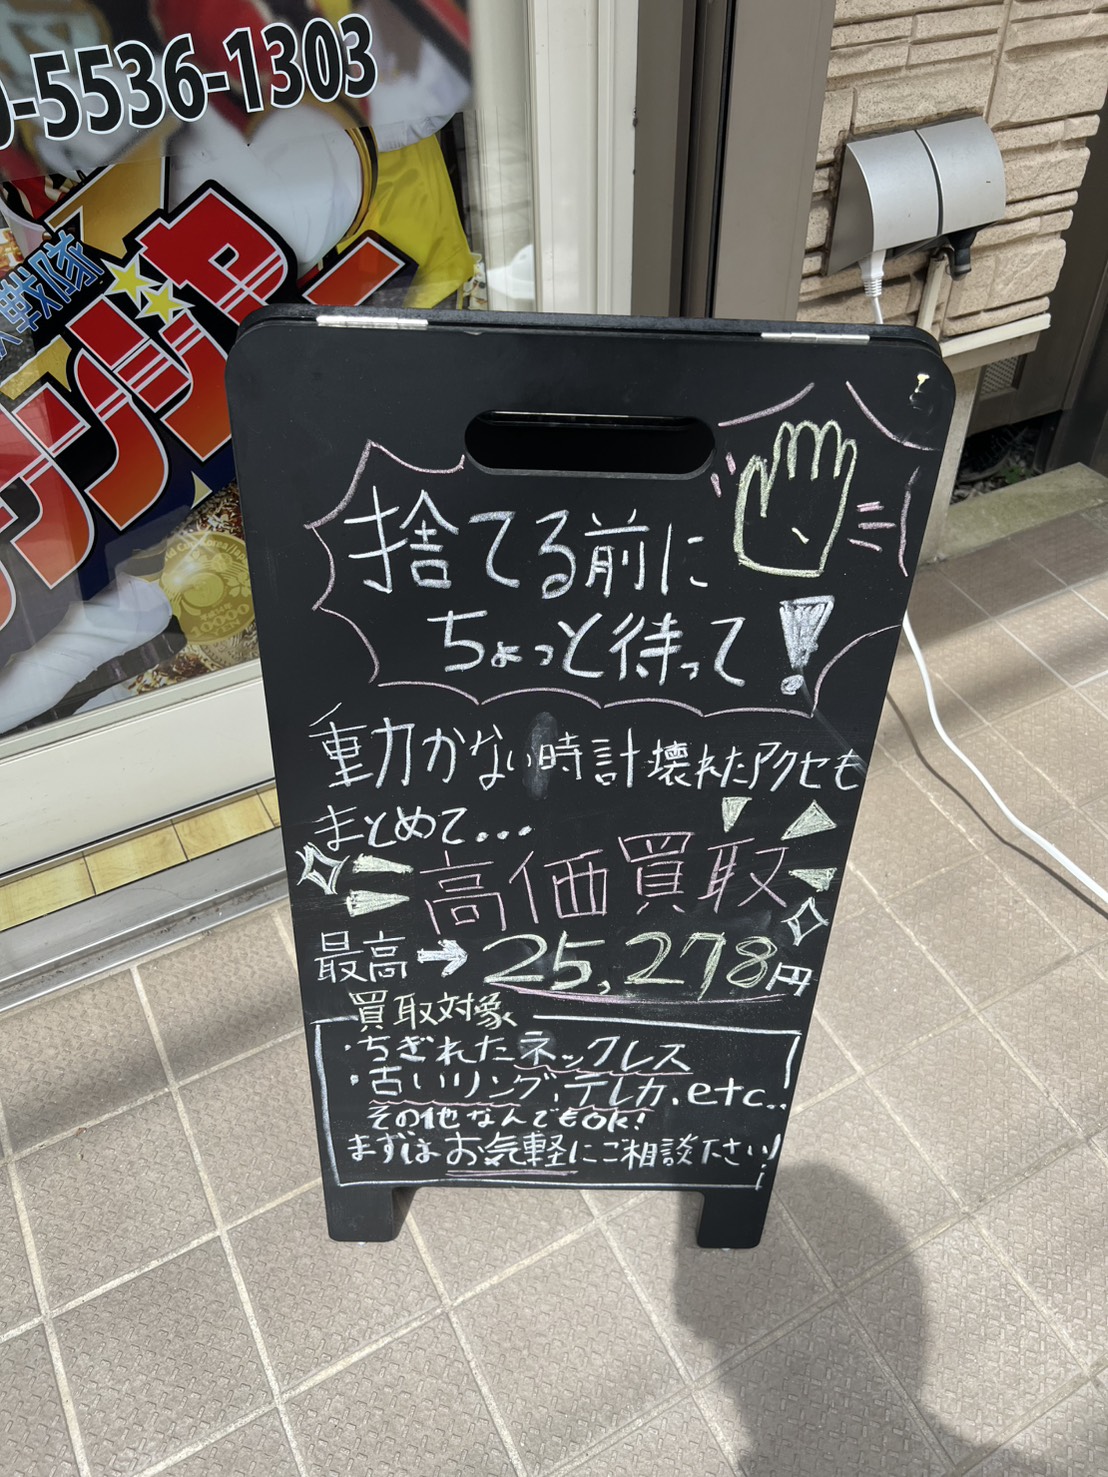 -5536-1303
戦隊
ンジャー
捨てる前に
ちょっと待って!
動かない時計壊れたアクセも
まとめて...
高価買取
最高→25,278円
買取対象
・ちぎれたネックレス
・古いリング,テレカ.etc..
その他なんでもOK!
まずはお気軽にご相談下さい!